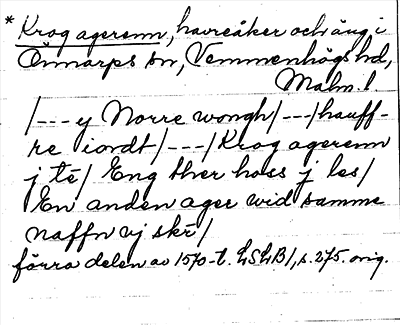 * Krog agerenn, havreåker och äng i
Önnarps sn, Vemmenhögs hd,
Malm. l.
/--- y Norre wongh/---/hauff-
re iordt/---/Krog agerenn
j tē/ Eng ther hoss j les/
En anden ager wid samme
naffn vj skē/
förra delen av 1570-t. LSLB/, s. 275. orig.